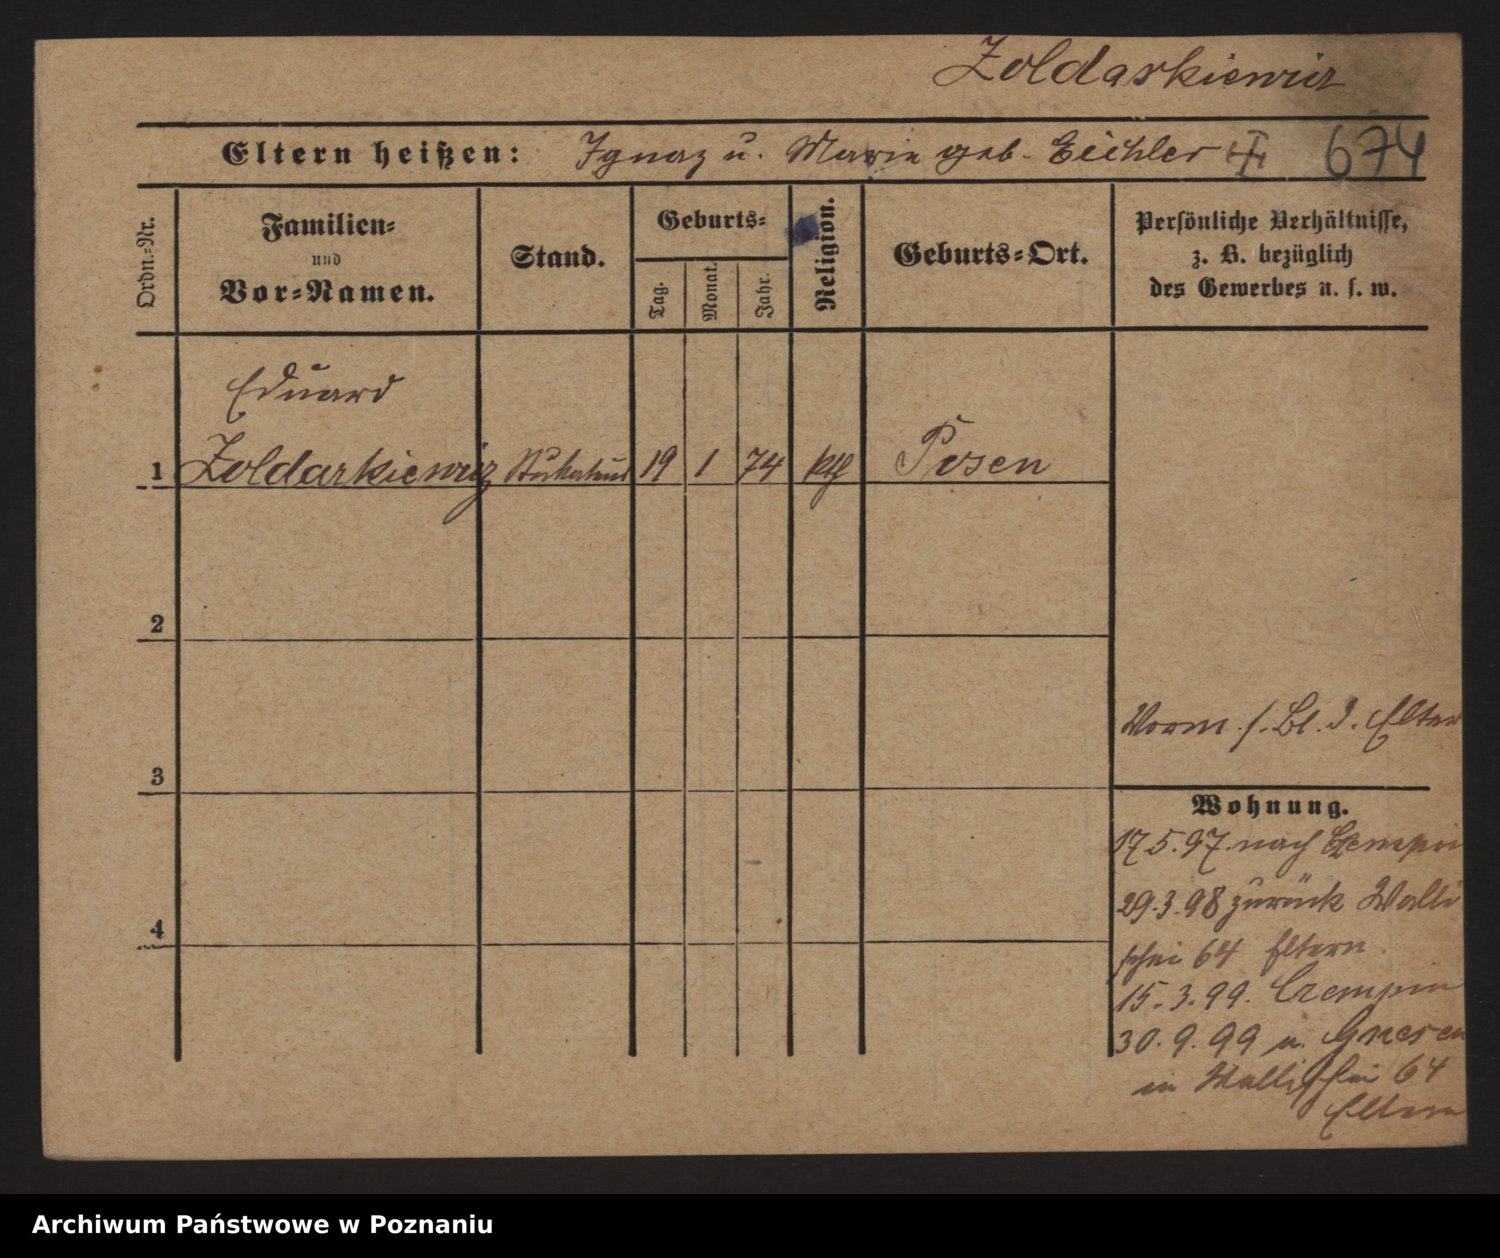 Zoldarkiewicz
Eltern heißen: Ignaz u. Marie geb. Eichler 674
Ordn.-Nr.
Familien-
und
Vor-Namen.
Stand.
Geburts-
Tag.
Monat.
Jahr.
Religion.
Geburts-Ort.
Persönliche Verhältnisse,
z. B. bezüglich
des Gewerbes u. s. w.
Eduard
1 Zoldarkiewicz 19 1 74 kth Posen
2
3
4
Vorm. s. Bl. d. Elter
Wohnung.
17.5.97 nach Czempin
29.3.98 zurück Walli
schei 64 Eltern.
15.3.99. Czempin
30.9.99 u. Gnesen
in Wallischei 64
Eltern
Archiwum Państwowe w Poznaniu